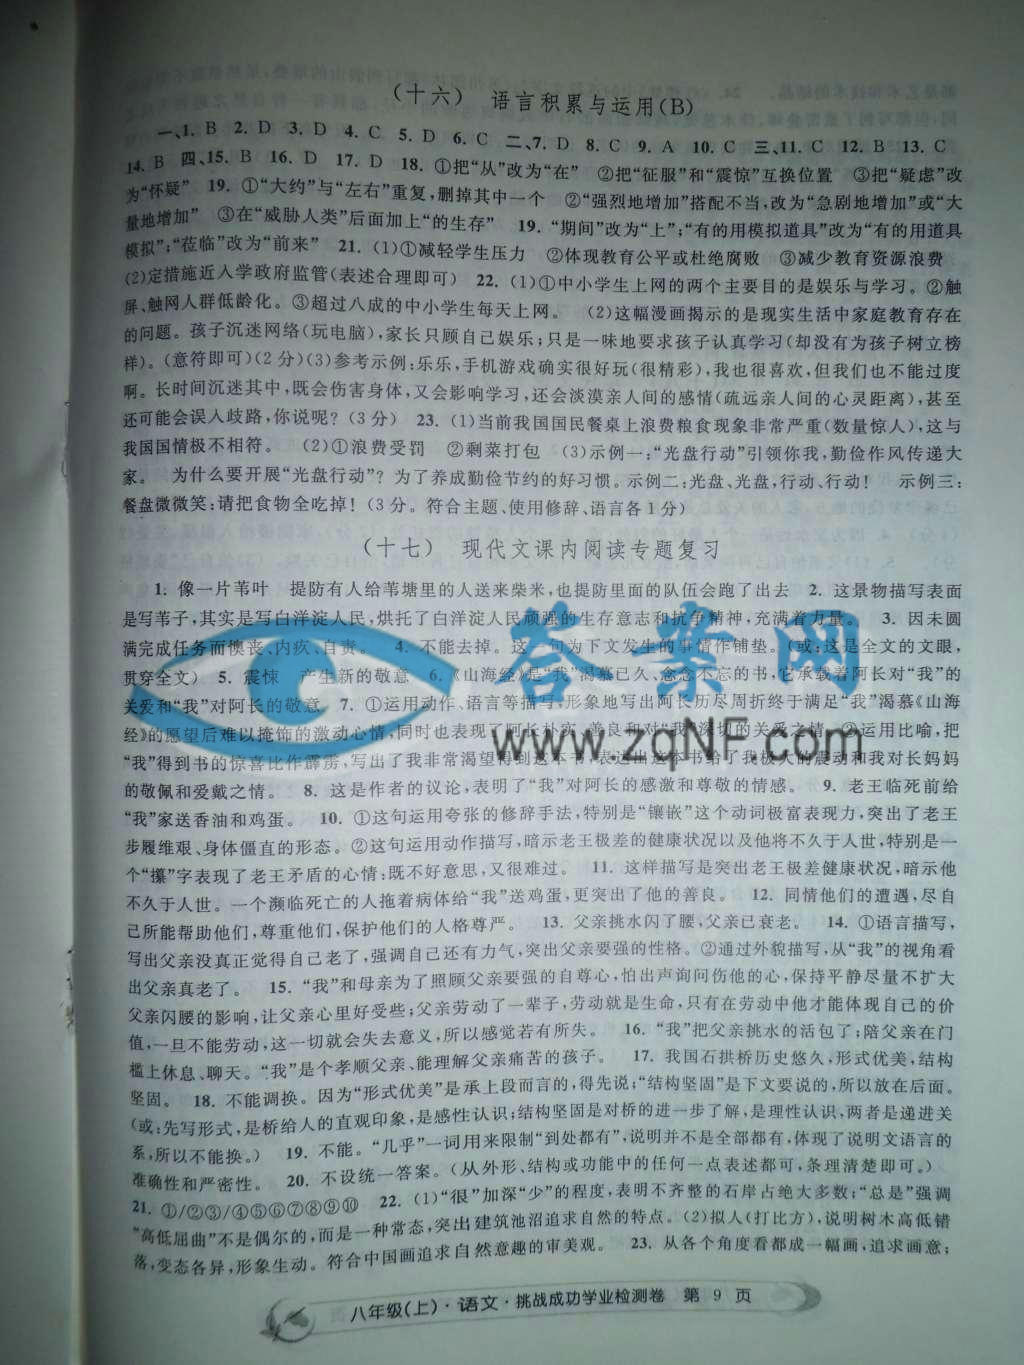 (十六) 语言积累与运用(B)
一、1. B 2. D 3. D 4. C 5. D 6. C 二、7. D 8. C 9. A 10. C 三、11. C 12. B 13. C
14. B 四、15. B 16. D 17. D 18. ①把“从”改为“在” ②把“征服”和“震惊”互换位置 ③把“疑虑”改
为“怀疑” 19. ①“大约”与“左右”重复，删掉其中一个 ②“强烈地增加”搭配不当，改为“急剧地增加”或“大
量地增加” ③在“威胁人类”后面加上“的生存” 19. “期间”改为“上”；“有的用模拟道具”改为“有的用道具
模拟”；“莅临”改为“前来” 21. (1)①减轻学生压力 ②体现教育公平或杜绝腐败 ③减少教育资源浪费
(2)定措施近入学政府监管(表述合理即可) 22. (1)①中小学生上网的两个主要目的是娱乐与学习。②触
屏、触网人群低龄化。③超过八成的中小学生每天上网。 (2)这幅漫画揭示的是现实生活中家庭教育存在
的问题。孩子沉迷网络(玩电脑)，家长只顾自己娱乐；只是一味地要求孩子认真学习(却没有为孩子树立榜
样)。(意符即可)(2分)(3)参考示例：乐乐，手机游戏确实很好玩(很精彩)，我也很喜欢，但我们也不能过度
啊。长时间沉迷其中，既会伤害身体，又会影响学习，还会淡漠亲人间的感情(疏远亲人间的心灵距离)，甚至
还可能会误入歧路，你说呢？(3分) 23. (1)当前我国国民餐桌上浪费粮食现象非常严重(数量惊人)，这与
我国国情极不相符。 (2)①浪费受罚 ②剩菜打包 (3)示例一：“光盘行动”引领你我，勤俭作风传递大
家。 为什么要开展“光盘行动”？为了养成勤俭节约的好习惯。示例二：光盘、光盘，行动、行动！ 示例三：
餐盘微微笑：请把食物全吃掉！(3分。符合主题、使用修辞、语言各1分)
(十七) 现代文课内阅读专题复习
1. 像一片苇叶 提防有人给苇塘里的人送来柴米，也提防里面的队伍会跑了出去 2. 这景物描写表面
是写苇子，其实是写白洋淀人民，烘托了白洋淀人民顽强的生存意志和抗争精神，充满着力量。 3. 因未圆
满完成任务而懊丧、内疚、自责。 4. 不能去掉。这一句为下文发生的事情作铺垫。(或：这是全文的文眼，
贯穿全文) 5. 震悚 产生新的敬意 6.《山海经》是“我”渴慕已久、念念不忘的书，它承载着阿长对“我”的
关爱和“我”对阿长的敬意。 7. ①运用动作、语言等描写，形象地写出阿长历尽周折终于满足“我”渴慕《山海
经》的愿望后难以掩饰的激动心情，同时也表现了阿长朴实、善良和对“我”深切的关爱之情。②运用比喻，把
“我”得到书的惊喜比作霹雳，写出了我非常渴望得到这本书，表达出这本书给了我极大的震动和我对长妈妈
的敬佩和爱戴之情。 8. 这是作者的议论，表明了“我”对阿长的感激和尊敬的情感。 9. 老王临死前给
“我”家送香油和鸡蛋。 10. ①这句运用夸张的修辞手法，特别是“镶嵌”这个动词极富表现力，突出了老王
步履维艰、身体僵直的形态。②这句运用动作描写，暗示老王极差的健康状况以及他将不久于人世，特别是一
个“攥”字表现了老王矛盾的心情；既不好意思，又很难过。 11. 这样描写是突出老王极差健康状况，暗示他
不久于人世。一个濒临死亡的人拖着病体给“我”送鸡蛋，更突出了他的善良。 12. 同情他们的遭遇，尽自
己所能帮助他们，尊重他们，保护他们的人格尊严。 13. 父亲挑水闪了腰，父亲已衰老。 14. ①语言描写，
写出父亲没真正觉得自己老了，强调自己还有力气，突出父亲要强的性格。②通过外貌描写，从“我”的视角看
出父亲真老了。 15. “我”和母亲为了照顾父亲要强的自尊心，怕出声询问伤他的心，保持平静尽量不扩大
父亲闪腰的影响，让父亲心里好受些；父亲劳动了一辈子，劳动就是生命，只有在劳动中他才能体现自己的价
值，一旦不能劳动，这一切就会失去意义，所以感觉若有所失。 16. “我”把父亲挑水的活包了；陪父亲在门
槛上休息、聊天。“我”是个孝顺父亲、能理解父亲痛苦的孩子。 17. 我国石拱桥历史悠久，形式优美，结构
坚固。 18. 不能调换。因为“形式优美”是承上段而言的，得先说；“结构坚固”是下文要说的，所以放在后面。
(或：先写形式，是桥给人的直观印象，是感性认识；结构坚固是对桥的进一步了解，是理性认识，两者是递进关
系，所以不能换。) 19. 不能。“几乎”一词用来限制“到处都有”，说明并不是全部都有，体现了说明文语言的
准确性和严密性。 20. 不设统一答案。(从外形、结构或功能中的任何一点表述都可，条理清楚即可。)
21. ①/②③/④⑤⑥⑦⑧⑨⑩ 22. (1)“很”加深“少”的程度，表明不齐整的石岸占绝大多数；“总是”强调
“高低屈曲”不是偶尔的，而是一种常态，突出建筑池沼追求自然的特点。(2)拟人(打比方)，说明树木高低错
落，变态各异，形象生动。符合中国画追求自然意趣的审美观。 23. 从各个角度看都成一幅画，追求画意；
八年级(上)·语文·挑战成功学业检测卷 第 9 页
答案网
www.zqNF.com